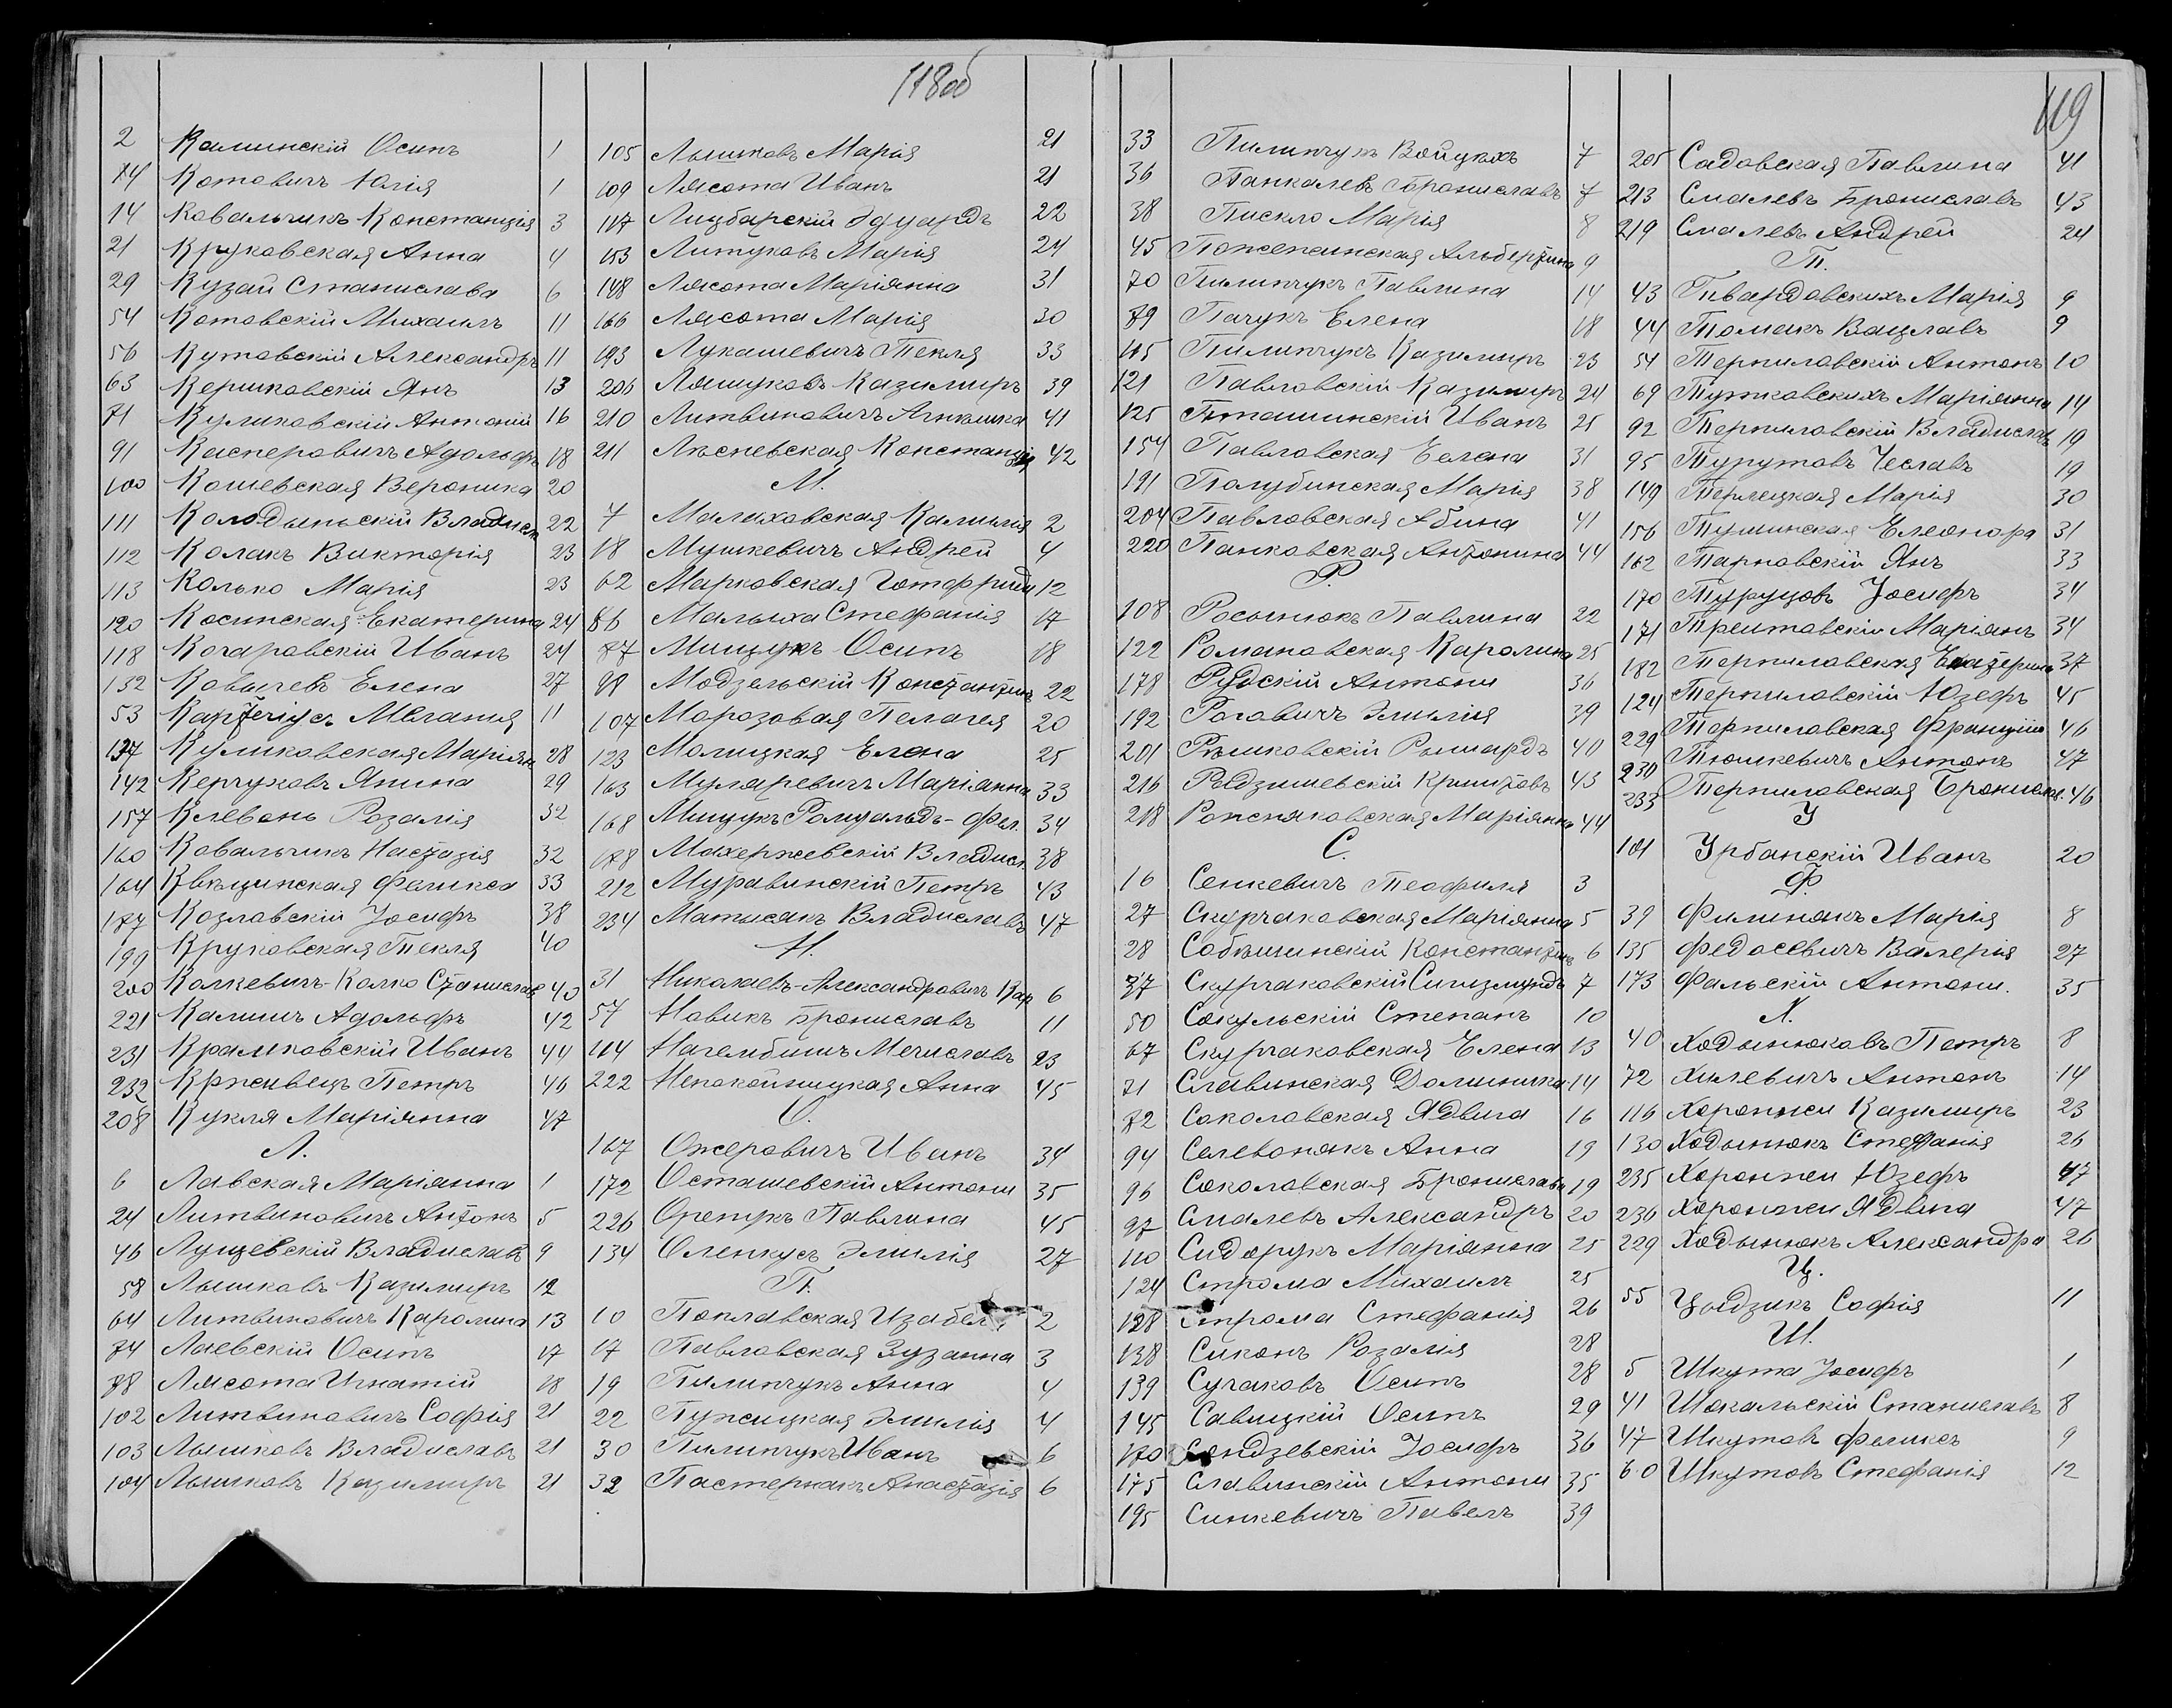 118об
2 Калинскій Осипъ 1
14 Котовичъ Юлія 1
14 Ковальчикъ Констанція 3
21 Круковская Анна 4
29 Кузай Станислава 6
54 Котовскій Михаилъ 11
56 Кутовскій Александръ 11
63 Кершковскій Янъ 13
71 Куликовскій Антоній 16
91 Касперовичъ Адольфъ 18
100 Кошевская Вероника 20
111 Колодыньскій Владисл 22
112 Колакъ Викторія 23
113 Колько Марія 23
120 Косинская Екатерина 24
118 Кочаровскій Иванъ 24
132 Ковычевъ Елена 27
53 Мелания 11
137 Куликовская Маріян 28
142 Керчуковъ Янина 29
157 Клевань Розалія 32
160 Ковальчикъ Настазія 32
164 Квѣцинская Феликса 33
187 Козловскій Іосифъ 38
199 Круковская Текля 40
200 Колкевичъ-Колко Станислав 40
221 Калишъ Адольфъ 42
231 Крамковскій Иванъ 44
232 Крживецъ Петръ 46
208 Кукля Маріянна 47
Л.
6 Лавская Маріянна 1
24 Литвиновичъ Антонъ 5
46 Лущевскій Владиславъ 9
58 Лышковъ Казимиръ 12
64 Литвиновичъ Каролина 13
84 Лаевскій Осипъ 17
88 Лясота Игнатій 18
102 Литвиновичъ Софія 21
103 Лышковъ Владиславъ 21
104 Лышковъ Казимиръ 21
105 Лышковъ Марія 21
109 Лясота Иванъ 21
117 Лицбарскій Эдуардъ 22
153 Литуковъ Марія 24
148 Лясота Маріянна 31
166 Лясота Марія 30
193 Лукашевичъ Текля 33
206 Ляшуковъ Казимиръ 39
210 Литвиновичъ Агнешка 41
211 Лѣсневская Констанція 42
М.
7 Малиховская Камилія 2
18 Мушкевичъ Андрей 4
62 Марковская Готфрида 12
86 Малыха Стефанія 17
87 Мищукъ Осипъ 18
98 Модзельскій Константинъ 22
107 Морозовая Пелагея 20
123 Молицкая Елена 25
163 Муляревичъ Маріанна 33
168 Мищукъ Ромуальдъ-Фел. 34
188 Махержевскій Владисл. 38
212 Муравинскій Петръ 43
234 Матысакъ Владиславъ 47
Н.
31 Николаевъ-Александровичъ Кар 6
57 Новикъ Брониславъ 11
114 Нагембишъ Мечиславъ 23
222 Непокойчицкая Анна 45
О.
167 Ожеровичъ Иванъ 34
172 Осташевскій Антони 35
226 Орепукъ Павлина 45
134 Оленкусъ Эмилія 27
П.
10 Поплавская Изабел 2
17 Павловская Зузанна 3
19 Пилипчукъ Анна 4
22 Пужицкая Эмилія 4
30 Пилипчукъ Иванъ 6
32 Пастернакъ Анастазія 6
119
33 Пилипчукъ Войцѣхъ 7
36 Панкалевъ Брониславъ 7
38 Пискло Марія 8
45 Поженжинская Альбертина 9
70 Пилипчукъ Павлина 14
89 Пачукъ Елена 18
115 Пилипчукъ Казимиръ 23
121 Павловскій Казимиръ 24
125 Пташинскій Иванъ 25
154 Павловская Елена 31
191 Полубинская Марія 38
204 Павловская Абина 41
220 Панковская Антонина 44
Р.
108 Росынюкъ Павлина 22
122 Романовская Каролина 25
178 Рудскій Антони 36
192 Роговичъ Эмилія 39
201 Рѣшковскій Рышардъ 40
216 Рыдзишевскій Криштовъ 43
218 Рожняковская Маріянна 44
С.
16 Сенкевичъ Теофиля 3
27 Скурчаковская Маріянна 5
28 Собѣшинскій Константинъ 6
37 Скурчаковскій Сигизмундъ 7
50 Сокульскій Степанъ 10
67 Скурчаковская Елена 13
71 Славинская Доминика 14
82 Соколовская Ядвига 16
94 Селевонякъ Анна 19
96 Соколовская Брониславa 19
97 Смалевъ Александръ 20
110 Сидорукъ Маріянна 25
124 Строма Михаилъ 25
128 Строма Стефанія 26
138 Сиконъ Розалія 28
139 Сучаковъ Осипъ 28
145 Савицкій Осипъ 29
170 Сендзевскій Іосифъ 36
175 Славинскій Антони 35
195 Синкевичъ Павелъ 39
205 Садовская Павлина 41
213 Смалевъ Брониславъ 43
219 Смалевъ Андрей 24
Т.
43 Твардовскихъ Марія 9
44 Томакъ Вацлавъ 9
54 Терпиловскій Антонъ 10
69 Тутковскихъ Маріянна 14
92 Терпиловскій Владислав 19
95 Турутовъ Чеславъ 19
149 Терлецкая Марія 30
156 Тушинская Елеонора 31
162 Тарновскій Янъ 33
170 Туруцовъ Іосифъ 34
171 Трештовскій Маріянъ 34
182 Терпиловская Екатерина 37
124 Терпиловскій Юзефъ 45
229 Терпиловская Францишк 46
230 Тюшкевичъ Антонъ 47
233 Терпиловская Бронислав. 46
У
101 Урбанскій Иванъ 20
Ф
39 Филинякъ Марія 8
135 Федосевичъ Валерія 27
173 Фальскій Антони. 35
Х.
40 Ходынюковъ Петръ 8
72 Хилевичъ Антонъ 14
116 Хоронжи Казимиръ 23
130 Ходынюкъ Стефанія 26
235 Хоронжи Юзефъ 47
236 Хоронжи Ядвига 47
229 Ходынюкъ Александра 26
Ц.
55 Цѣдзикъ Софія 11
Ш.
5 Шкута Іосифъ 1
41 Шокальскій Станиславъ 8
47 Шкутовъ Феликсъ 9
60 Шкутовъ Стефанія 12